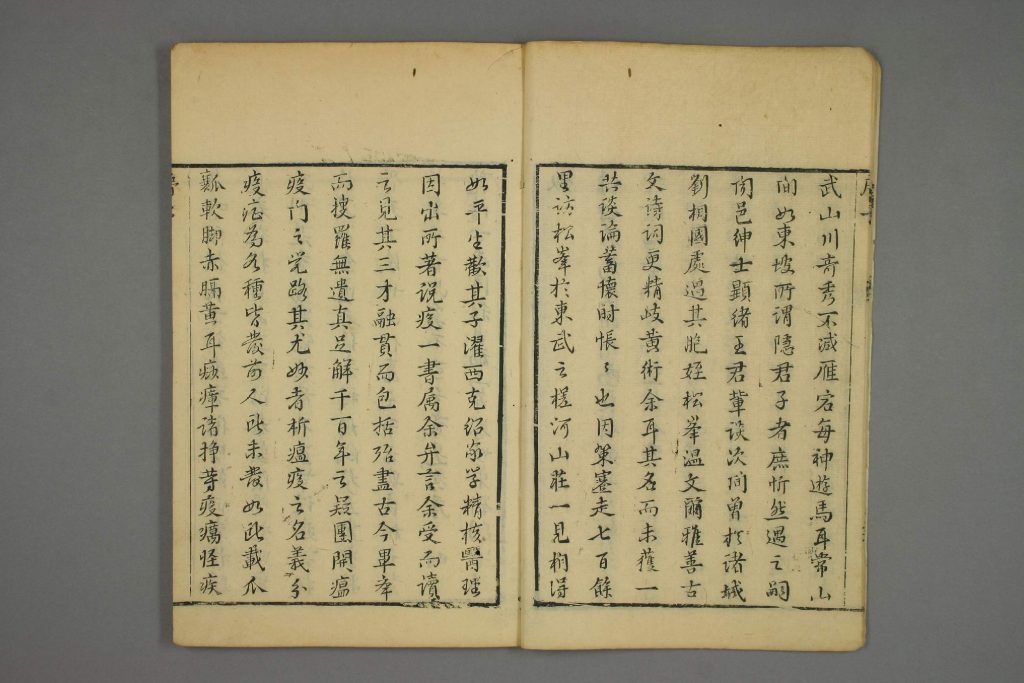 武山川奇秀不減雁宕每神遊馬耳常山
間如東坡所謂隱君子者庶忻然遇之嗣
聞邑紳士顯緒王君輩談次間曾於諸城
劉相國處遇其胞姪松峯溫文爾雅善古
文詩詞更精岐黃術余耳其名而未獲一
共談論蓄懷時悵〻也因策蹇走七百餘
里訪松峯於東武之槎河山莊一見相得
如平生歡其子濯西克紹家學精核醫理
因出所著說疫一書属余弁言余受而讀
之見其三才融貫而包括殆盡古今畢羣
而搜羅無遺真足解千百年之疑團開瘟
疫門之覺路其尤妙者析瘟疫之名義分
疫症為各種皆發前人所未發如所載瓜
瓤軟脚赤膈黃耳痎瘴諸掙等疫癘怪疾
序